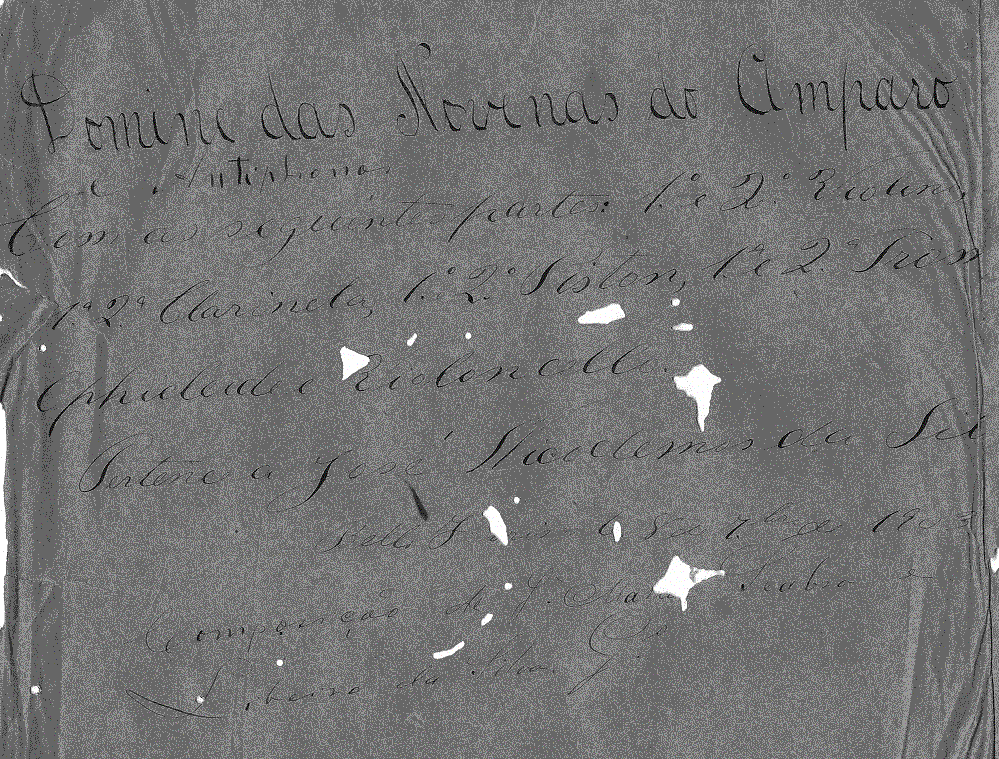 Domine das Novenas do Amparo
e Antiphona
Com as seguintes partes: 1.º e 2.º Violino,
1.ª 2.ª Clarineta, 1.º 2.º Piston, 1.º e 2.º Trom
Ophicleide e Violoncello.
Pertence a José Nicodemos da Sil
Bello 8 de 7.bro de
Composição de J. Seabra e
Ribeiro da Silva G.